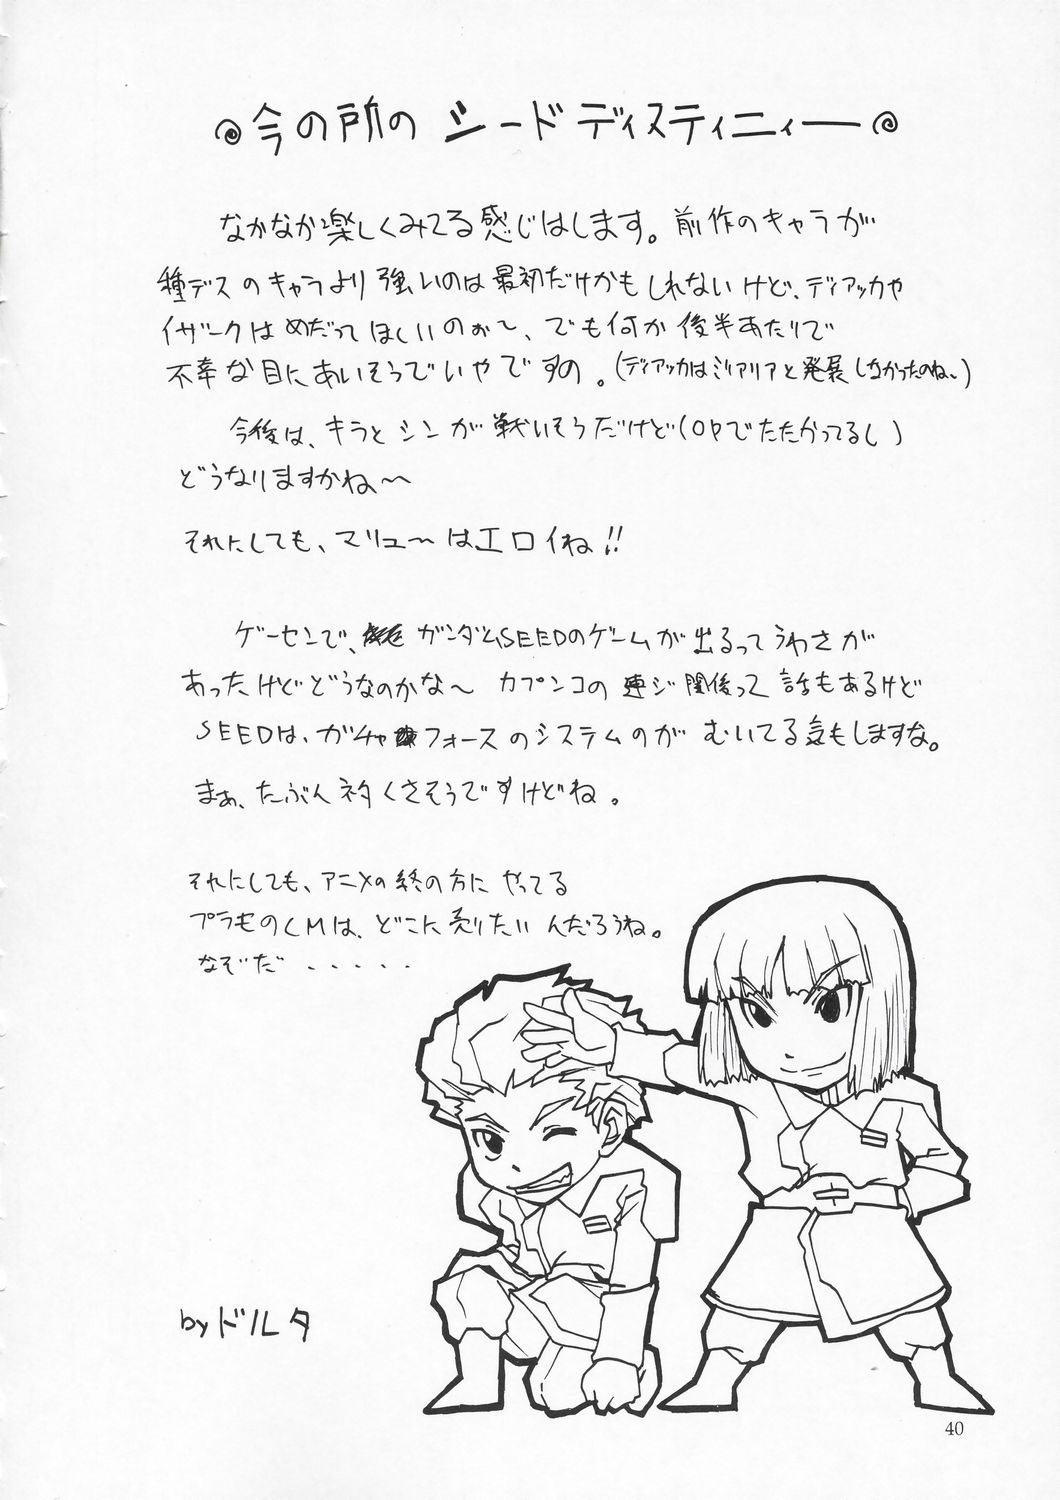 今の所の シードディスティニィー
なかなか楽しくみてる感じはします。前作のキャラが
種デスのキャラより強いのは最初だけかもしれないけど、ディアッカや
イザークはめだってほしいのぉ〜、でも何か後半あたりで
不幸な目にあいそうでいやですの。(ディアッカはミリアリアと発展しなかったのね〜)
今後は、キラとシンが戦いそうだけど(OPでたたかってるし)
どうなりますかね〜〜
それにしても、マリュ〜はエロイね!!
ゲーセンで、ガンダムSEEDのゲームが出るってうわさが
あったけどどうなのかな〜 カプンコの連ジ関係って話もあるけど
SEEDは、ガチャフォースのシステムのが むいてる気もしますな。
まぁ、たぶんネタくさそうですけどね。
それにしても、アニメの終の方に やってる
プラモのCMは、どこに売りたいんだろうね。
なぞだ ・・・・・
by ドルタ
40